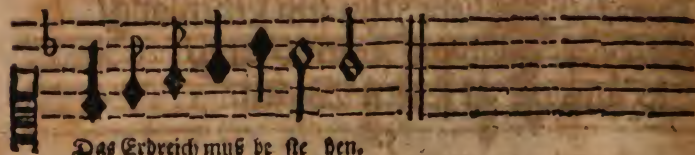 Das Erdreich muß be ste hen.